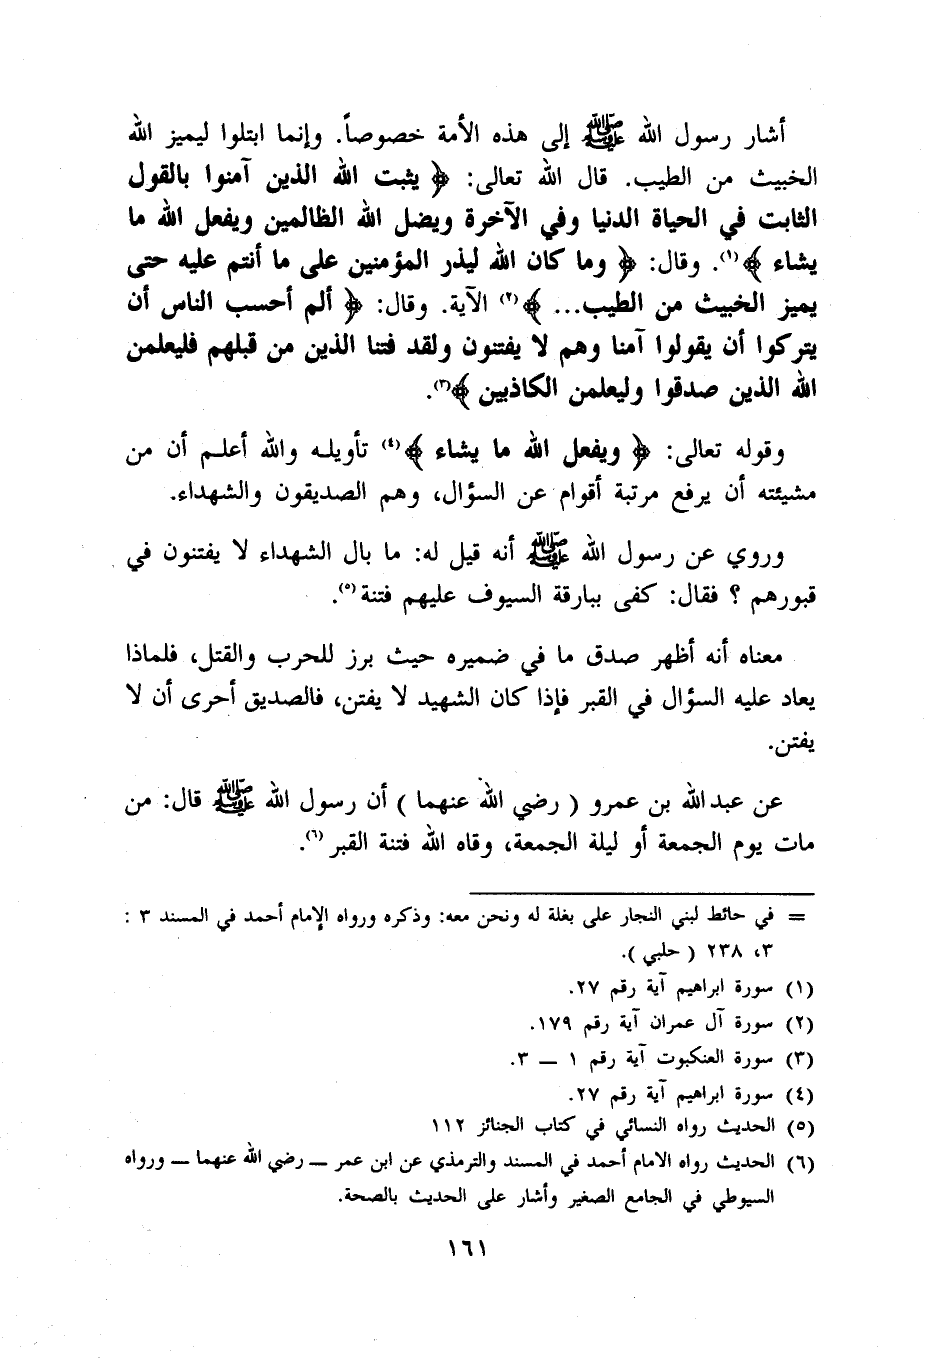 أشار رسول الله ﷺ إلى هذه الأمة خصوصاً. وإنما ابتلوا ليميز الله
الخبيث من الطيب. قال الله تعالى: ﴿ يثبت الله الذين آمنوا بالقول
الثابت في الحياة الدنيا وفي الآخرة ويضل الله الظالمين ويفعل الله ما
يشاء ﴾(١). وقال: ﴿ وما كان الله ليذر المؤمنين على ما أنتم عليه حتى
يميز الخبيث من الطيب... ﴾(٢) الآية. وقال: ﴿ ألم أحسب الناس أن
يتركوا أن يقولوا آمنا وهم لا يفتنون ولقد فتنا الذين من قبلهم فليعلمن
الله الذين صدقوا وليعلمن الكاذبين ﴾(٣).
وقوله تعالى: ﴿ ويفعل الله ما يشاء ﴾(٤) تأويله والله أعلم أن من
مشيئته أن يرفع مرتبة أقوام عن السؤال، وهم الصديقون والشهداء.
وروي عن رسول الله ﷺ أنه قيل له: ما بال الشهداء لا يفتنون في
قبورهم ؟ فقال: كفى ببارقة السيوف عليهم فتنة(٥).
معناه أنه أظهر صدق ما في ضميره حيث برز للحرب والقتل، فلماذا
يعاد عليه السؤال في القبر فإذا كان الشهيد لا يفتن، فالصديق أحرى أن لا
يفتن.
عن عبدالله بن عمرو ( رضي الله عنهما ) أن رسول الله ﷺ قال: من
مات يوم الجمعة أو ليلة الجمعة، وقاه الله فتنة القبر(٦).
= في حائط لبني النجار على بغلة له ونحن معه: وذكره ورواه الإمام أحمد في المسند ٣ :
٣، ٢٣٨ ( حلبي ).
(١) سورة ابراهيم آية رقم ٢٧.
(٢) سورة آل عمران آية رقم ١٧٩.
(٣) سورة العنكبوت آية رقم ١ — ٣.
(٤) سورة ابراهيم آية رقم ٢٧.
(٥) الحديث رواه النسائي في كتاب الجنائز ١١٢
(٦) الحديث رواه الامام أحمد في المسند والترمذي عن ابن عمر — رضي الله عنهما — ورواه
السيوطي في الجامع الصغير وأشار على الحديث بالصحة.
١٦١